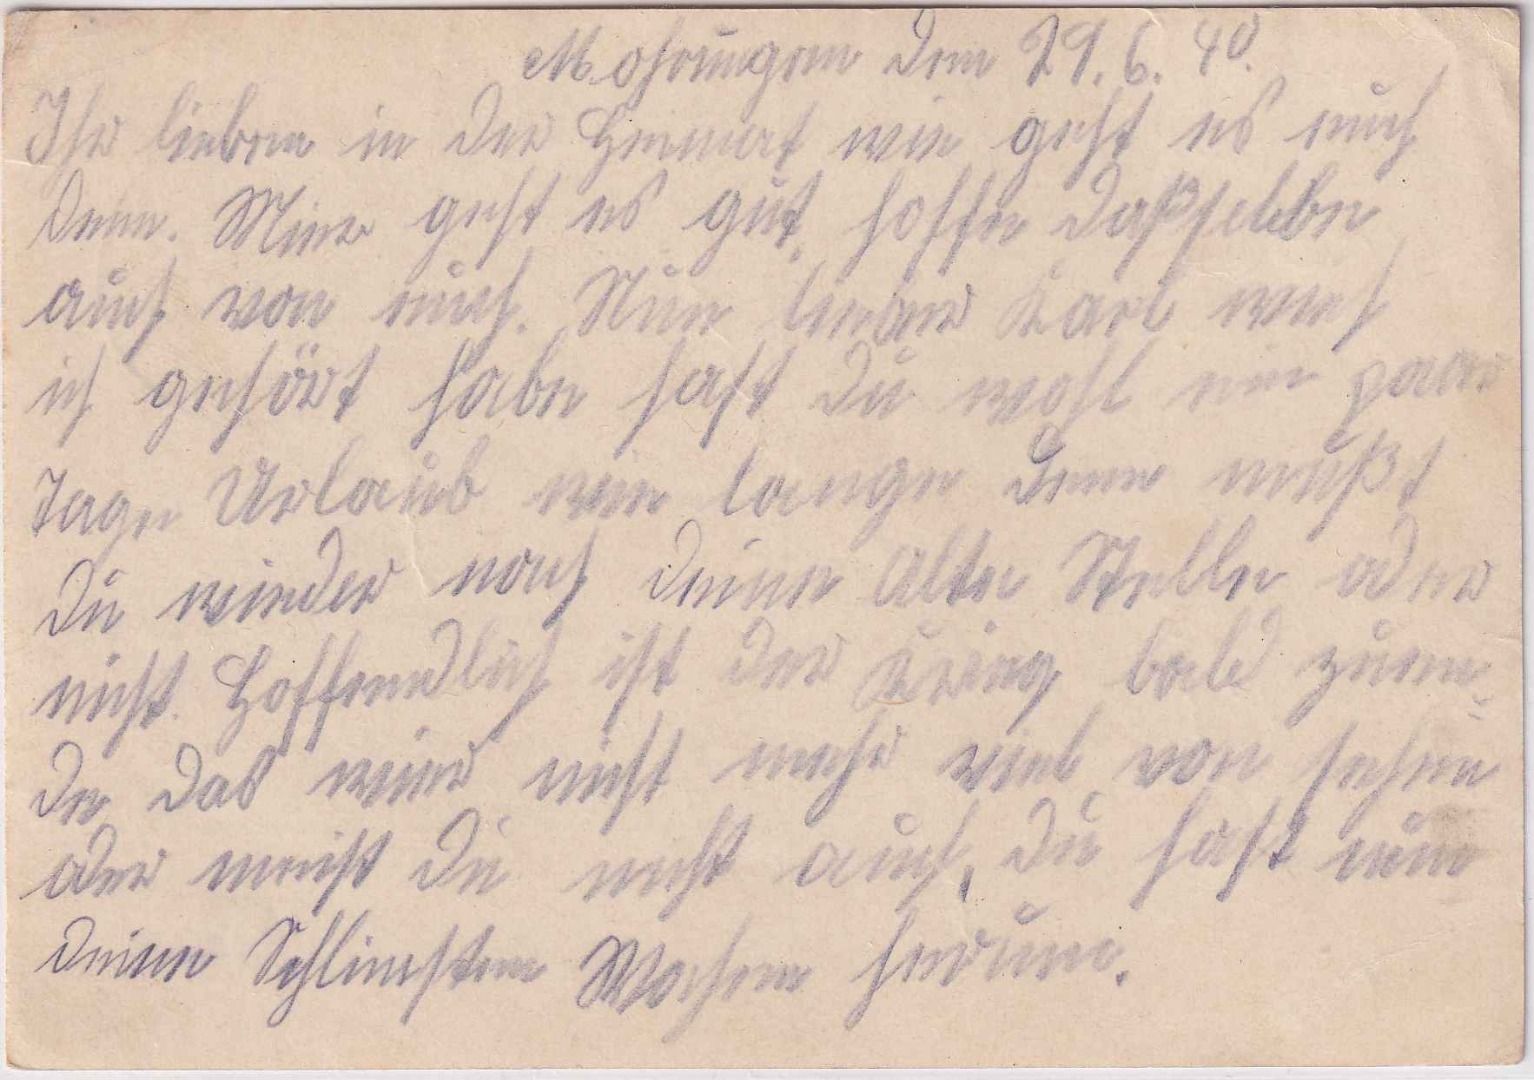 Mohrungen den 29.6.40.
Ihr lieben in der Heimat wie geht es euch
denn. Mier geht es gut, hoffe daßselbe
auch von euch. Nun lieber Karl wieh
ich gehört habe hast du wohl ein paar
Tage Urlaub wie lange denn mußt
du wieder nach deine alte Stelle oder
nicht. Hoffendlich ist der Krieg bald zuen=
de das wier nicht mehr viel von sehen
oder meist du nicht auch, du hast nun
deine Schlimsten Wochen herum.